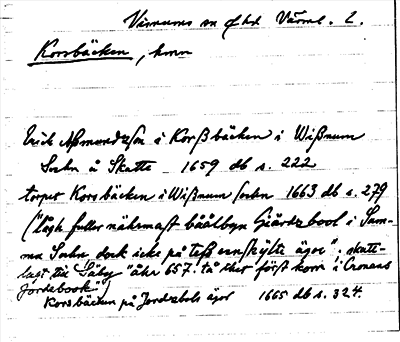 Visnums sn Värml. l.
Korsbäcken, hmn
Erich Aßmundzson i Korßbäcken i Wißnum
Sochn å Skatte 1659 db s. 222
torpet Korsbäcken i Wißnum sochn 1663 db s. 279
("lågh fuller nährmast båålbyn Giärdzbool i Sam-
ma Sochn dock icke på teß enskylte ägor". skatt-
lagt till Säby "åhr 657. tå thet först kom i Cronans
Jordebook")
Korsbäcken på Jordzbols ägor 1665 db s. 324.